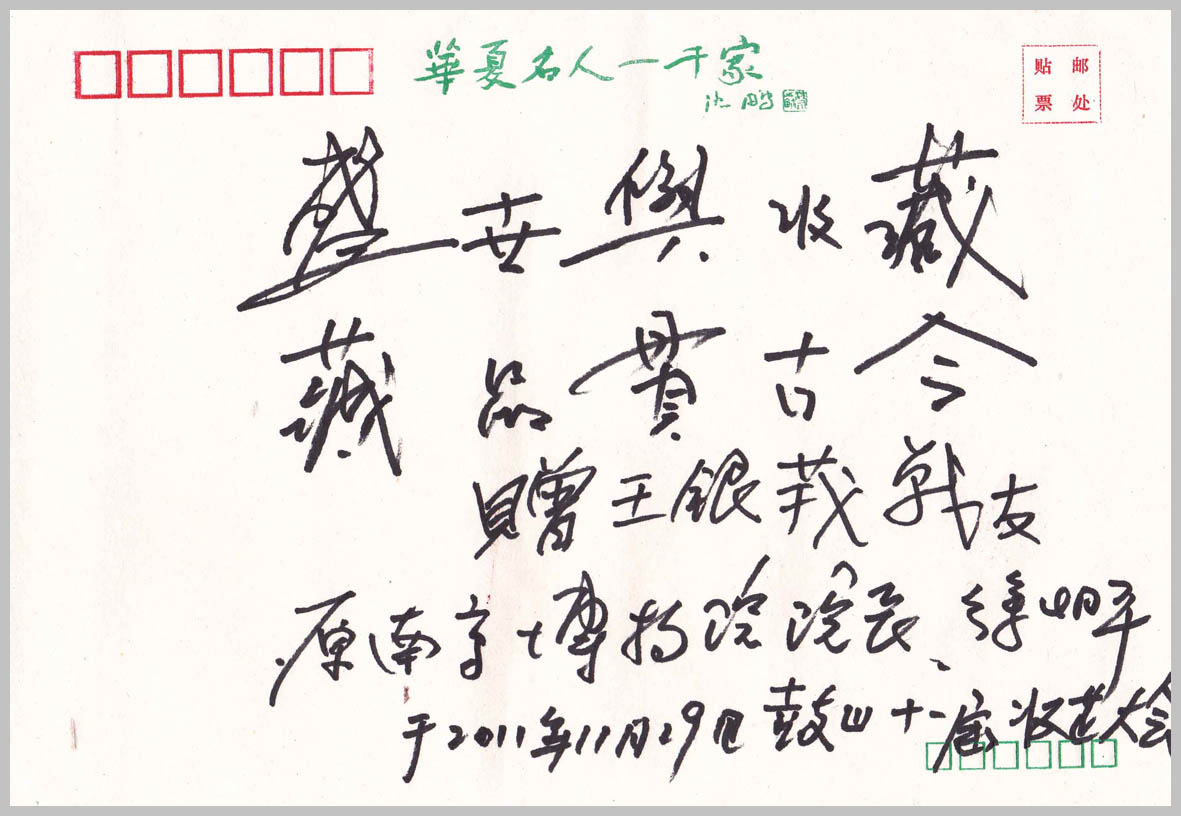 華夏名人一千家
沈鹏
贴邮
票处
盛世興收藏
藏品貫古今
贈王銀莪戰友
原南京博物院院长、徐湖平
于2011年11月29日鼓山十一届收芷大会